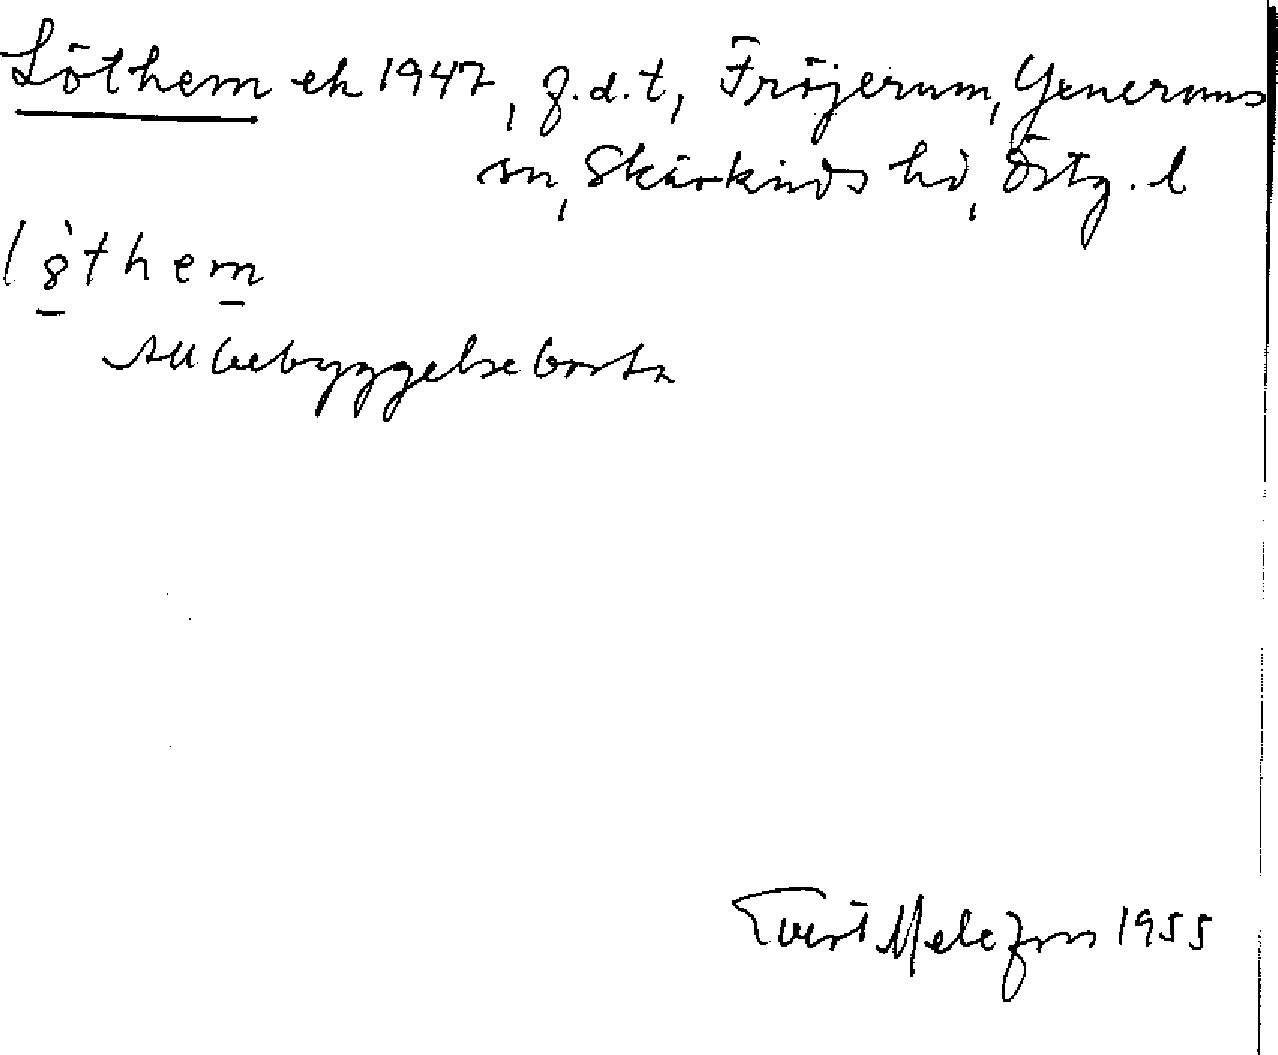 Löthem ek 1947, f.d.t, Fröjerum, Generums
sn, Skärkinds hd, Östg. l
löthem
All bebyggelse borta
Evert Melefors 1955